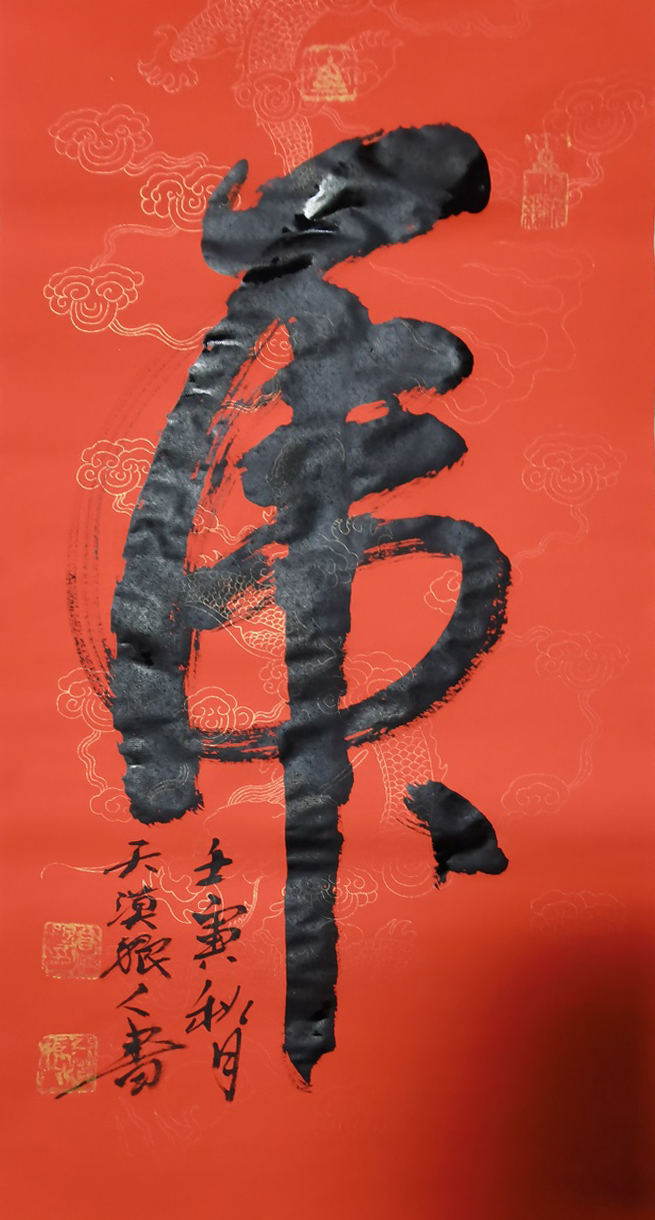 虎
壬寅秋月
天漠狼人書